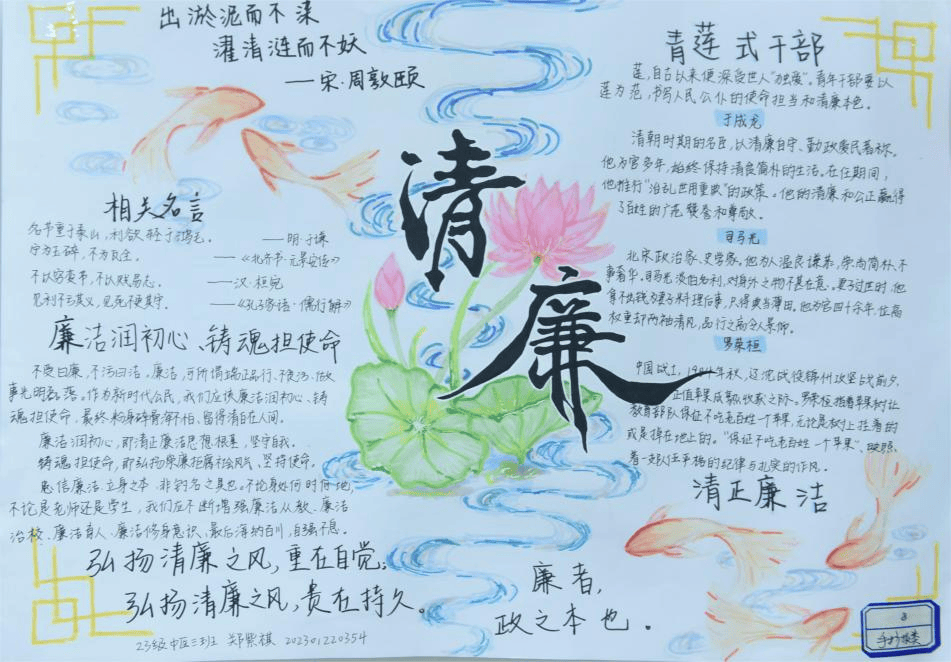 出淤泥而不染
濯清涟而不妖
——宋·周敦颐
相关名言
名节重于泰山，利欲轻于鸿毛。 ——明·于谦
宁为玉碎，不为瓦全。 ——《北齐书·元景安传》
不以穷变节，不以贱易志。 ——汉·桓宽
见利不亏其义，见死不更其守。 ——《孔子家语·儒行解》
廉洁润初心、铸魂担使命
不受曰廉，不污曰洁。廉洁，可所谓端正品行、不受污、做
事光明磊落。作为新时代公民，我们应扶廉洁润初心、铸
魂担使命，最终粉身碎骨浑不怕，留得清白在人间。
廉洁润初心，即清正廉洁思想根基，坚守自我。
铸魂担使命，即弘扬崇廉拒腐社会风气，坚持使命。
思信廉洁立身之本，非钓名之具也。不论身处何时何地，
不论是老师还是学生，我们应不断增强廉洁从教、廉洁
治校、廉洁育人、廉洁修身意识，最后海纳百川，自强不息。
弘扬清廉之风，重在自觉；
弘扬清廉之风，贵在持久。
23级中医三班 郑紫祺 202301220354
清
廉
青莲式干部
莲，自古以来便深受世人“独爱”。青年干部要以
莲为范，书写人民公仆的使命担当和清廉本色。
于成龙
清朝时期的名臣，以清廉自守、勤政爱民著称。
他为官多年，始终保持清贫简朴的生活。在任期间，
他推行“治乱世用重典”的政策。他的清廉和公正赢得
了百姓的广范赞誉和尊敬。
司马光
北宋政治家、史学家，他为人温良谦恭，崇尚简朴、不
事奢华。司马光淡泊名利，对身外之物不甚在意。妻子过世时，他
拿不出钱为妻子料理后事，只得典当薄田。他为官四十余年，位高
权重却两袖清风，品行之高令人景仰。
罗荣桓
中国战士，1948年秋，辽沈战役锦州攻坚战前夕，
正值苹果成熟收获之际。罗荣桓指着苹果树让
教育部队保证不吃老百姓一个苹果，无论是树上挂着的
或是掉在地上的。“保证不吃老百姓一个苹果”，映照
着一支队伍严格的纪律与扎实的作风。
清正廉洁
廉者，
政之本也。
8
手抄报类